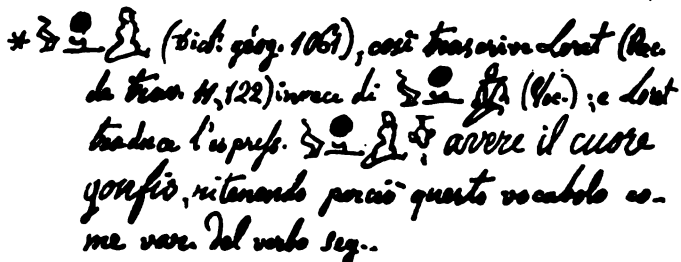 * (Dict. géog. 1061), così trascrive Loret (Rec.
de trav. 11, 122) invece di (Voc.); e Loret
traduce l'espress. avere il cuore
gonfio, ritenendo perciò questo vocabolo co-
me var. del verbo seg..